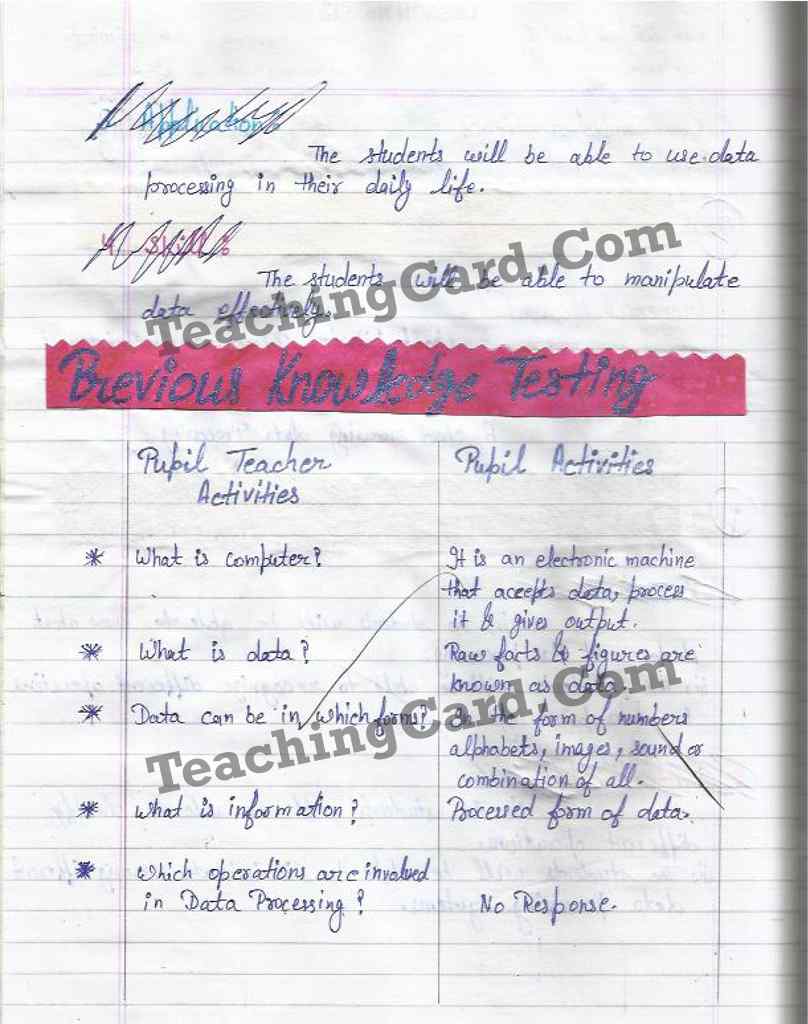 3. Application :
The students will be able to use data
processing in their daily life.
4. Skill :
The students will be able to manipulate
data effectively.
TeachingCard.Com
Previous Knowledge Testing
Pupil Teacher
Activities
Pupil Activities
* What is computer?
It is an electronic machine
that accepts data, process
it & gives output.
* What is data?
Raw facts & figures are
known as data.
* Data can be in which forms?
In the form of numbers
alphabets, images, sound or
combination of all.
TeachingCard.Com
* What is information?
Processed form of data.
* Which operations are involved
in Data Processing?
No Response.